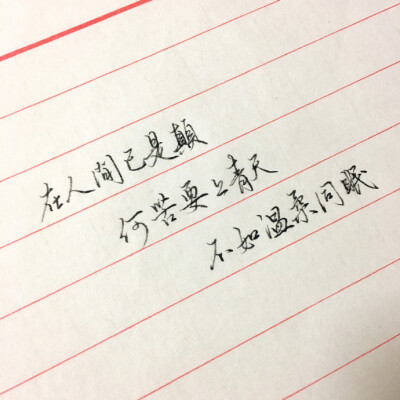 在人間已是顛
何苦要上青天
不如溫柔同眠